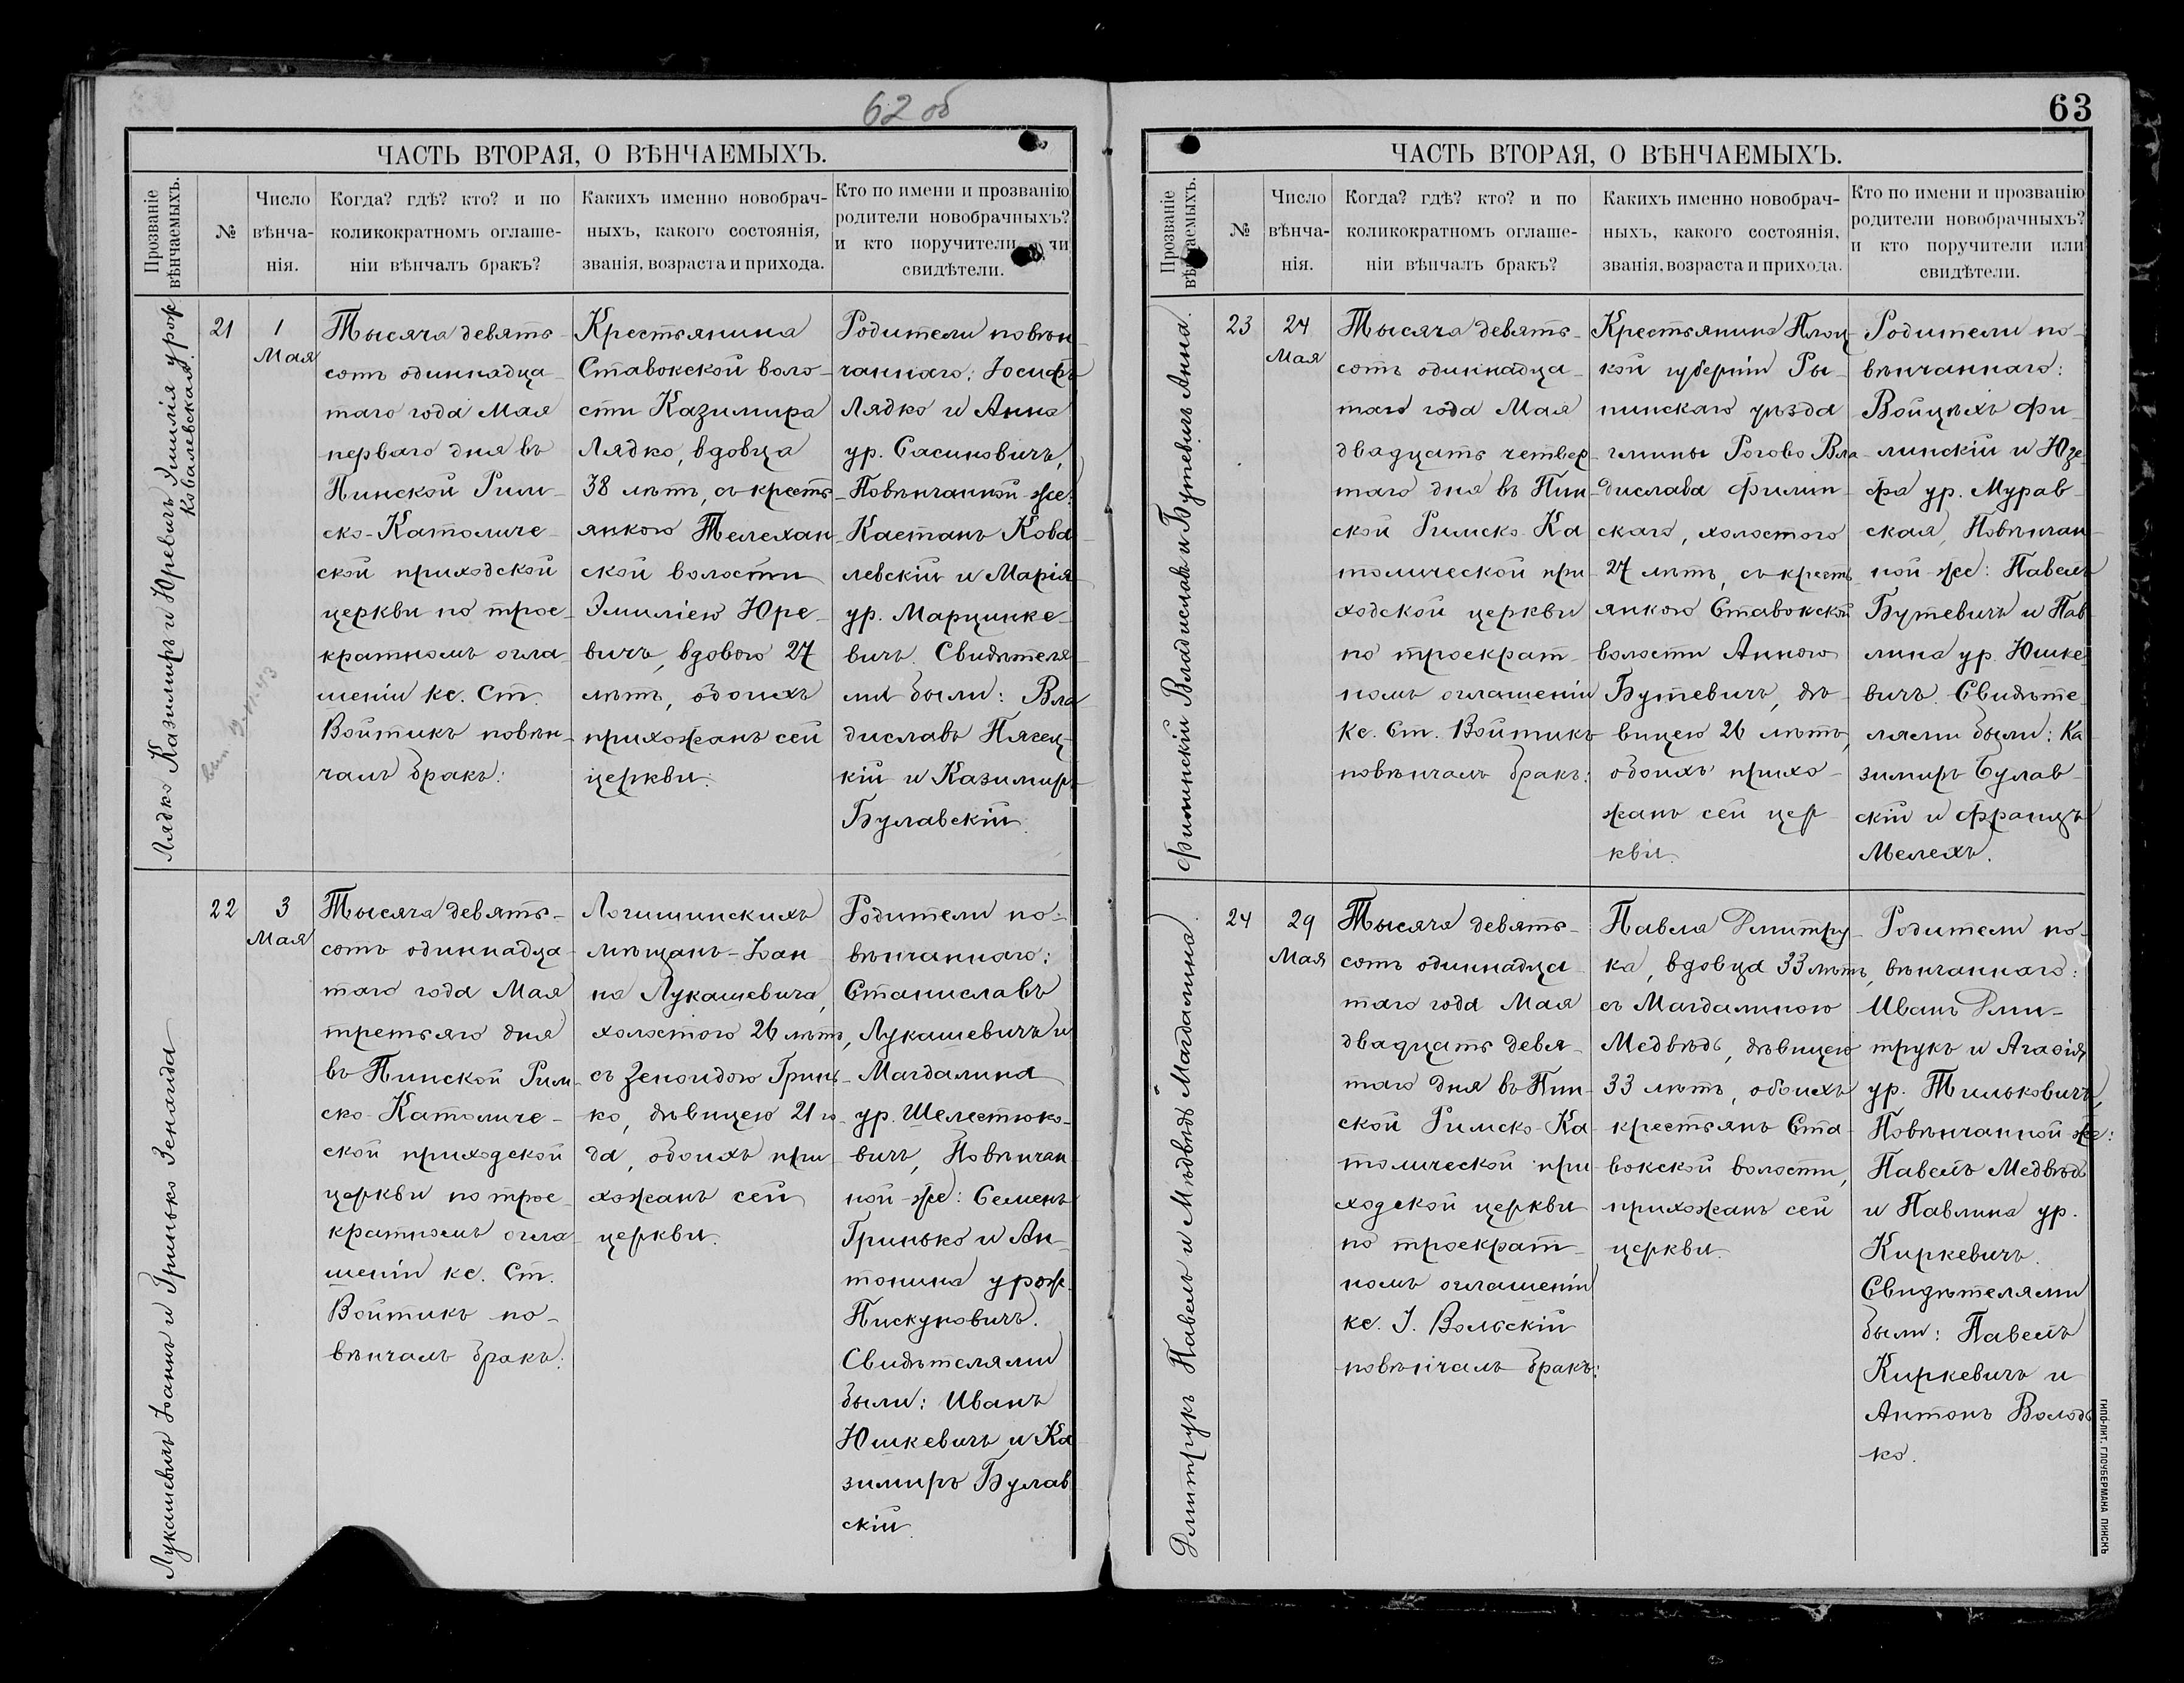 62 об
ЧАСТЬ ВТОРАЯ, О ВѢНЧАЕМЫХЪ.
Прозваніе
вѣнчаемыхъ.
№
Число
вѣнча-
нія.
Когда? гдѣ? кто? и по
коликократномъ оглаше-
ніи вѣнчалъ бракъ?
Какихъ именно новобрач-
ныхъ, какого состоянія,
званія, возраста и прихода.
Кто по имени и прозванію
родители новобрачныхъ?
и кто поручители
свидѣтели.
Лядко Казимиръ и Юревичъ Эмилія урож
Ковалевская
21
1
Мая
Тысяча девять-
сотъ одиннадца-
таго года Мая
перваго дня въ
Пинской Рим-
ско-Католиче-
ской приходской
церкви по трое-
кратномъ огла-
шеніи кс. Ст.
Войтикъ повѣн-
чалъ бракъ:
Крестьянина
Ставокской воло-
сти Казимира
Лядко, вдовца
38 лѣтъ, съ кресть-
янкою Телехан-
ской волости
Эмиліею Юре-
вичъ, вдовою 27
лѣтъ, обоихъ
прихожанъ сей
церкви:
Родители повѣн-
чаннаго: Іосифъ
Лядко и Анна
ур. Сасиновичъ,
Повѣнчанной-же:
Каетанъ Кова-
левскій и Марія
ур. Марцинке-
вичъ. Свидѣтеля-
ми были: Вла-
диславъ Пясец-
кій и Казимиръ
Булавскій.
Лукашевичъ Іоаннъ и Гринько Зенаида
22
3
Мая
Тысяча девять-
сотъ одиннадца-
таго года Мая
третьяго дня
въ Пинской Рим-
ско-Католиче-
ской приходской
церкви по трое-
кратномъ огла-
шеніи кс. Ст.
Войтикъ по-
вѣнчалъ бракъ:
Логишинскихъ
мѣщанъ-Іоан-
на Лукашевича,
холостого 26 лѣтъ,
съ Зеноидою Гринь-
ко, дѣвицею 21 го-
да, обоихъ при-
хожанъ сей
церкви.
Родители по-
вѣнчаннаго:
Станиславъ
Лукашевичъ и
Магдалина
ур. Шелестюко-
вичъ, Повѣнчан-
ной-же: Семенъ
Гринько и Ан-
тонина урож.
Пискуновичъ.
Свидѣтелями
были: Иванъ
Юшкевичъ и Ка-
зимиръ Булав-
скій.
63
ЧАСТЬ ВТОРАЯ, О ВѢНЧАЕМЫХЪ.
Прозваніе
вѣнчаемыхъ.
№
Число
вѣнча-
нія.
Когда? гдѣ? кто? и по
коликократномъ оглаше-
ніи вѣнчалъ бракъ?
Какихъ именно новобрач-
ныхъ, какого состоянія,
званія, возраста и прихода.
Кто по имени и прозванію
родители новобрачныхъ?
и кто поручители или
свидѣтели.
Владиславъ и Бутевичъ Анна.
23
24
Мая
Тысяча девять-
сотъ одиннадца-
таго года Мая
двадцать четвер-
таго дня въ Пин-
ской Римско-Ка-
толической при-
ходской церкви
по троекрат-
номъ оглашеніи
кс. Ст. Войтикъ
повѣнчалъ бракъ:
Крестьянина Плоц-
кой губерніи Ры-
пинскаго уѣзда
гмины Рогово Вла-
дислава Филин-
скаго, холостого
27 лѣтъ, съ кресть-
янкою Ставокской
волости Анною
Бутевичъ, дѣ-
вицею 26 лѣтъ,
обоихъ прихо-
жанъ сей цер-
кви.
Родители по-
вѣнчаннаго:
Войцѣхъ Фи-
линскій и Юзе-
фа ур. Мурав-
ская, Повѣнчан-
ной-же: Павелъ
Бутевичъ и Пав-
лина ур. Юшке-
вичъ. Свидѣте-
лями были: Ка-
зимиръ Булав-
скій и Францъ
Мелехъ.
Дмитрукъ Павелъ и Мѣдвѣдь Магдалина
24
29
Мая
Тысяча девять-
сотъ одиннадца-
таго года Мая
двадцать девя-
таго дня въ Пин-
ской Римско-Ка-
толической при-
ходской церкви
по троекрат-
номъ оглашеніи
кс. І. Вольскій
повѣнчалъ бракъ:
Павла Дмитру-
ка, вдовца 33 лѣтъ,
съ Магдалиною
Медвѣдь, дѣвицею
33 лѣтъ, обоихъ
крестьянъ Ста-
вокской волости,
прихожанъ сей
церкви.
Родители по-
вѣнчаннаго:
Иванъ Дми-
трукъ и Агафія
ур. Тильковичъ,
Повѣнчанной же:
Павелъ Медвѣдь
и Павлина ур.
Киркевичъ.
Свидѣтелями
были: Павелъ
Киркевичъ и
Антонъ Володь-
ко.
ТИПО-ЛИТ. ГЛОУБЕРМАНА ПИНСКЪ